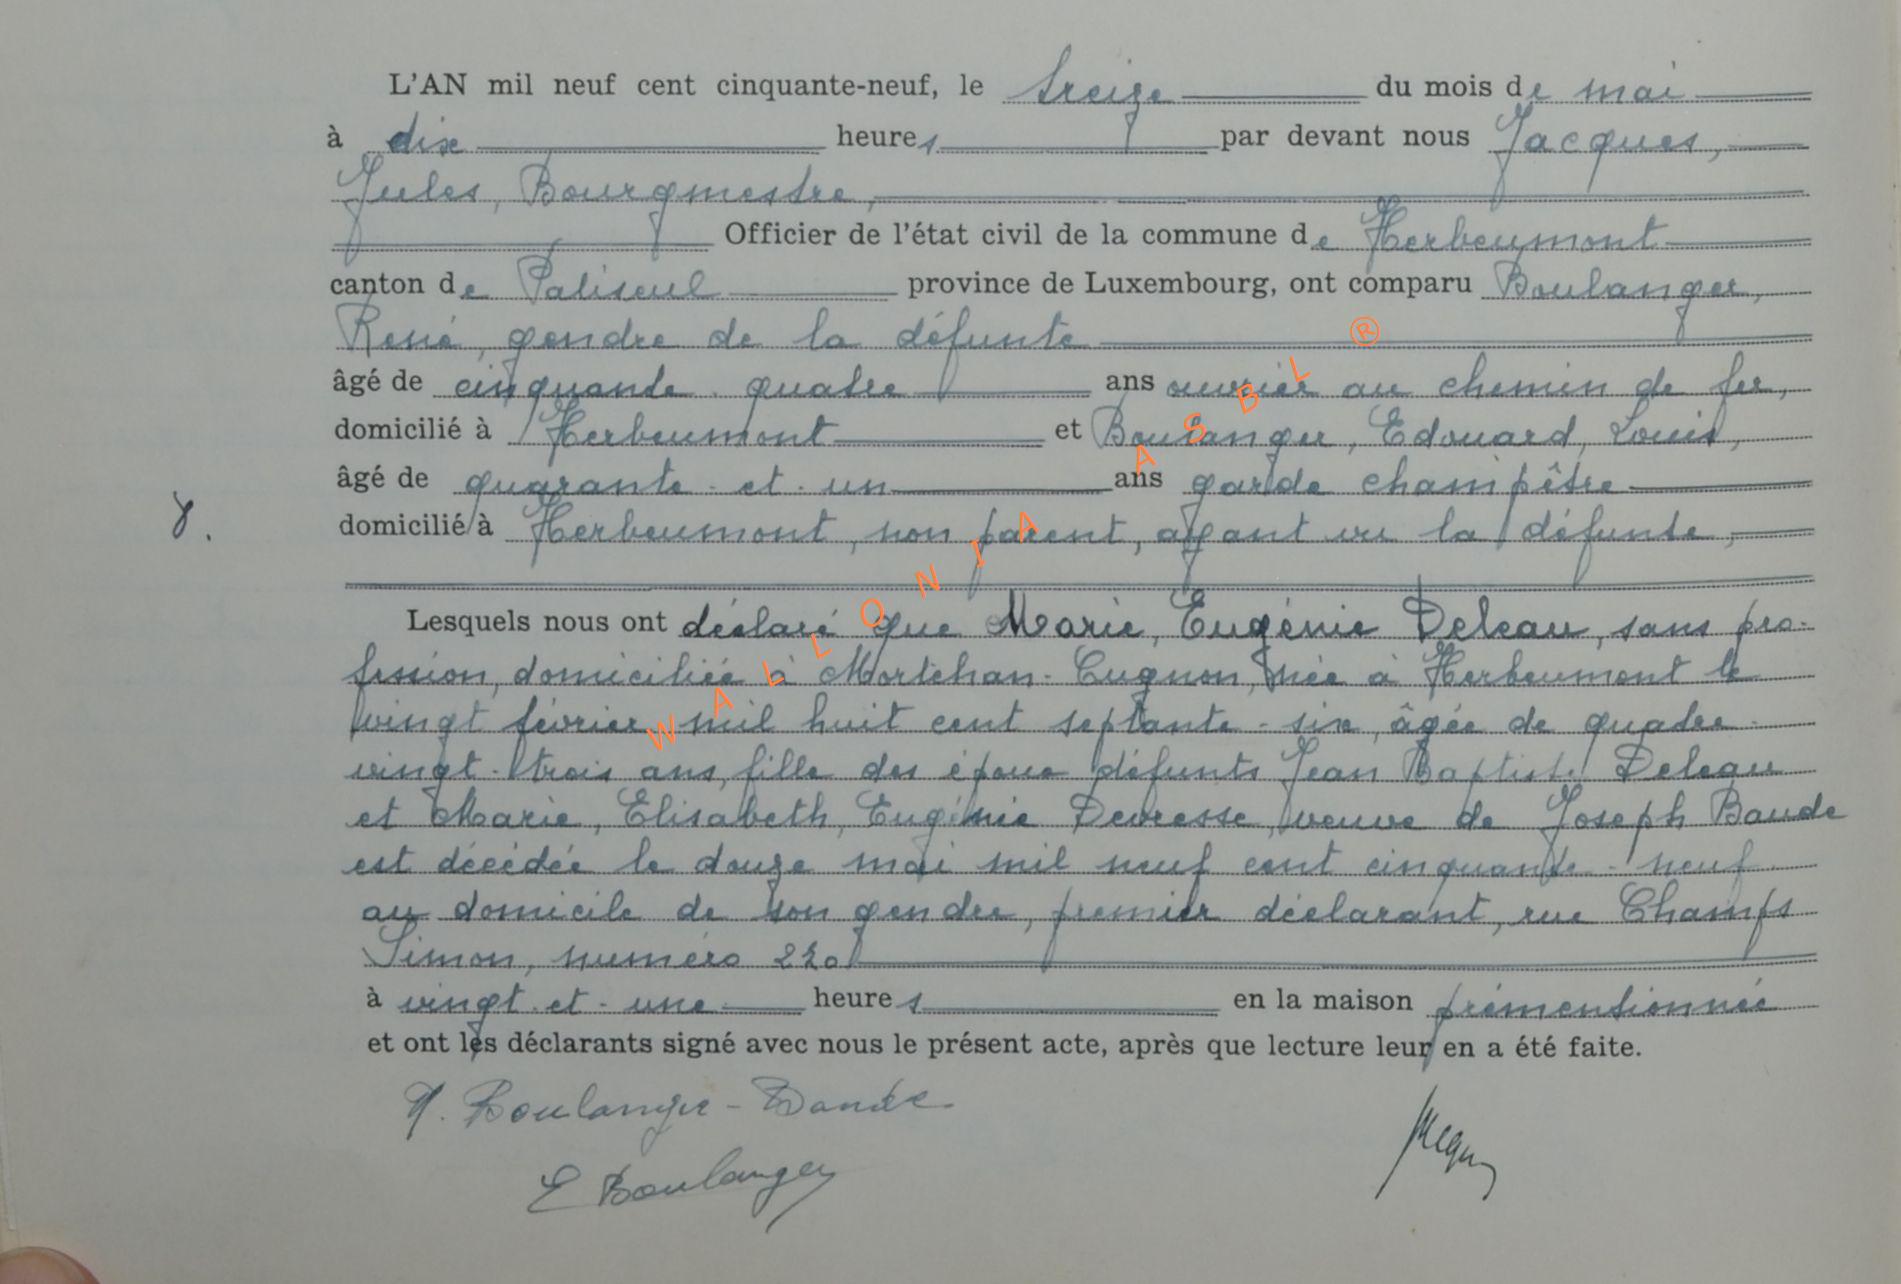 L'AN mil neuf cent cinquante-neuf, le treize du mois de mai
à dix heures par devant nous Jacques,
Jules, Bourgmestre,
Officier de l'état civil de la commune de Herbeumont
canton de Paliseul province de Luxembourg, ont comparu Boulanger,
René, gendre de la défunte
âgé de cinquante-quatre ans ouvrier au chemin de fer,
domicilié à Herbeumont et Boulanger, Edouard, Louis,
âgé de quarante-et-un ans garde champêtre
8. domicilié à Herbeumont, non parent, ayant vu la défunte,
Lesquels nous ont déclaré que Marie, Eugénie Deleau, sans pro-
fession, domiciliée à Mortehan-Cugnon, née à Herbeumont le
vingt février mil huit cent septante-six, âgée de quatre-
vingt-trois ans, fille des époux défunts Jean Baptiste Deleau
et Marie, Elisabeth, Eugénie Devresse, veuve de Joseph Baude
est décédée le douze mai mil neuf cent cinquante-neuf
au domicile de son gendre, premier déclarant, rue Champs
Simon, numéro 220
à vingt-et-une heures en la maison prémentionnée
et ont les déclarants signé avec nous le présent acte, après que lecture leur en a été faite.
R. Boulanger-Baude
E Boulanger
Jacques
WALLONIA ASBL ®